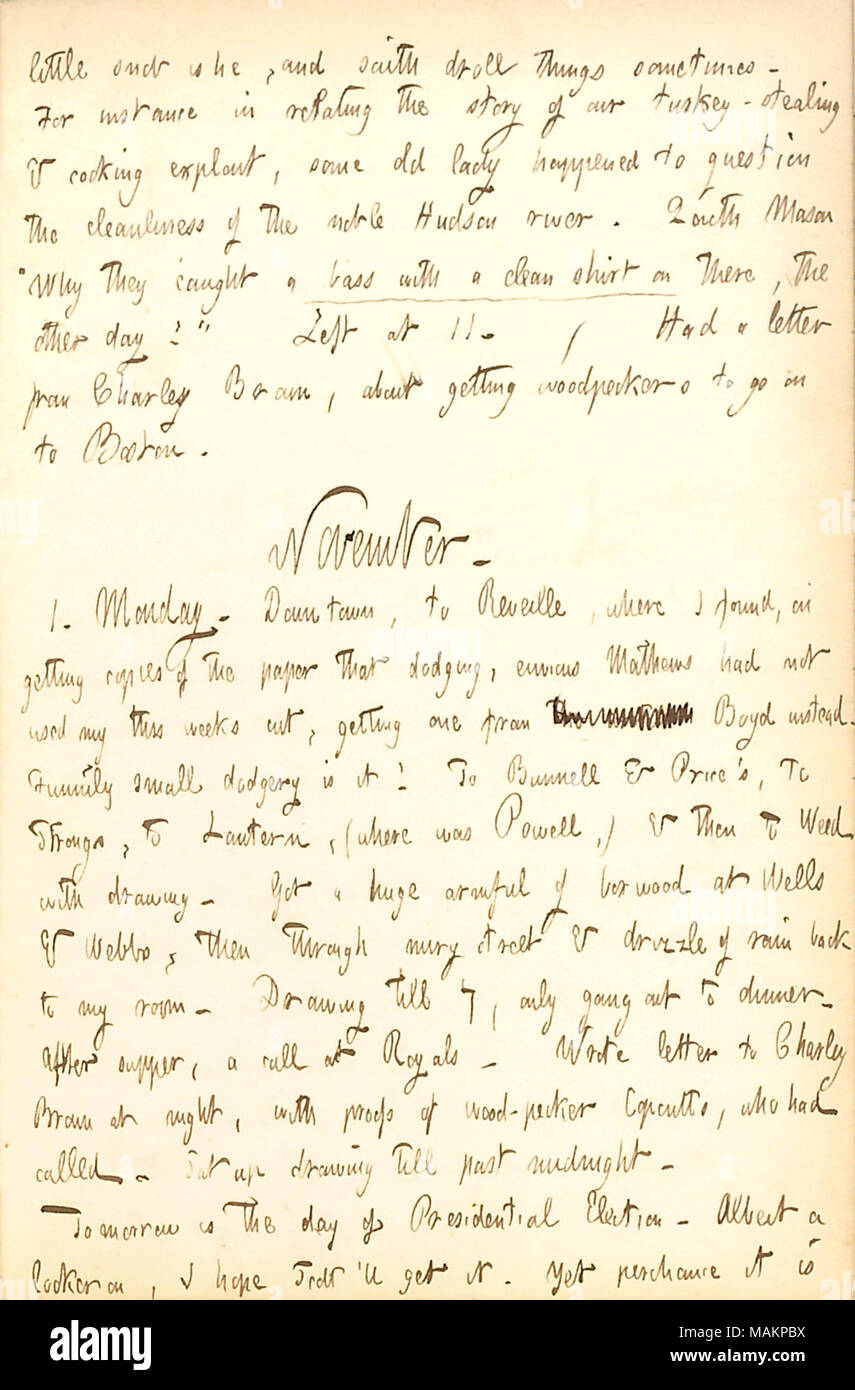 little snob is he, and saith droll things sometimes -
For instance in relating the story of our turkey-stealing
& cooking exploit, some old lady happened to question
the cleanliness of the noble Hudson river. Quoth Mason
"Why they caught a bass with a clean shirt on there, the
other day!" Left at 11 - Had a letter
from Charley Brown, about getting woodpeckers to go on
to Boston.
November -
1. Monday - Down town, to Reveille, where I found, on
getting copies of the paper that dodging, envious Mathews had not
used my this weeks cut, getting one from Boyd instead.
Funnily small dodgery is it! To Bunnell & Price's, to
Strongs, to Lantern, (where was Powell,) & then to Weed
with drawing - Got a huge armful of boxwood at Wells
& Webbs, then through miry street & drizzle of rain back
to my room - Drawing till 7, only going out to dinner -
After supper, a call at Royals - Wrote letter to Charley
Brown at night, with proofs of wood-pecker Copcutts, who had
called - Sat up drawing till past midnight -
Tomorrow is the day of Presidential Election - Albeit a
looker on, I hope Scott 'll get it. Yet perchance it is
alamy
Image ID: MAKPBX
www.alamy.com